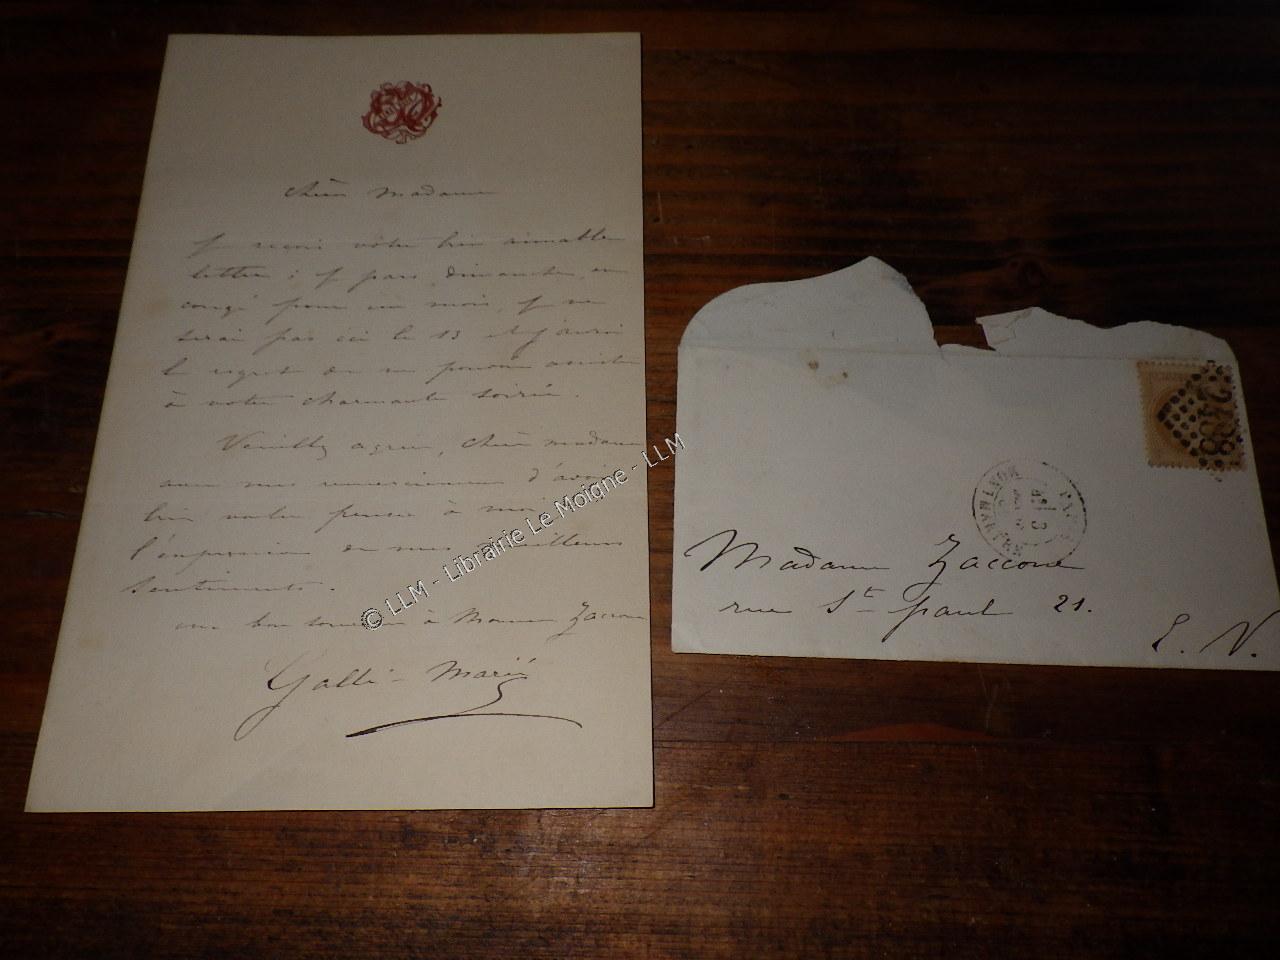 Chère Madame
Je reçois votre bien aimable
lettre ; je pars dimanche, en
congé pour un mois, je ne
serai pas ici le 13 et j'aurai
le regret de ne pouvoir assister
à votre charmante soirée.
Veuillez agréer, chère madame
avec mes remerciements d'avoir
bien voulu penser à moi
l'expression de mes meilleurs
sentiments.
mon bon souvenir à Monsieur Zaccone
Galli-Marié
Madame Zaccone
rue St paul 21.
E. V.
© LLM - Librairie Le Moigne - LLM